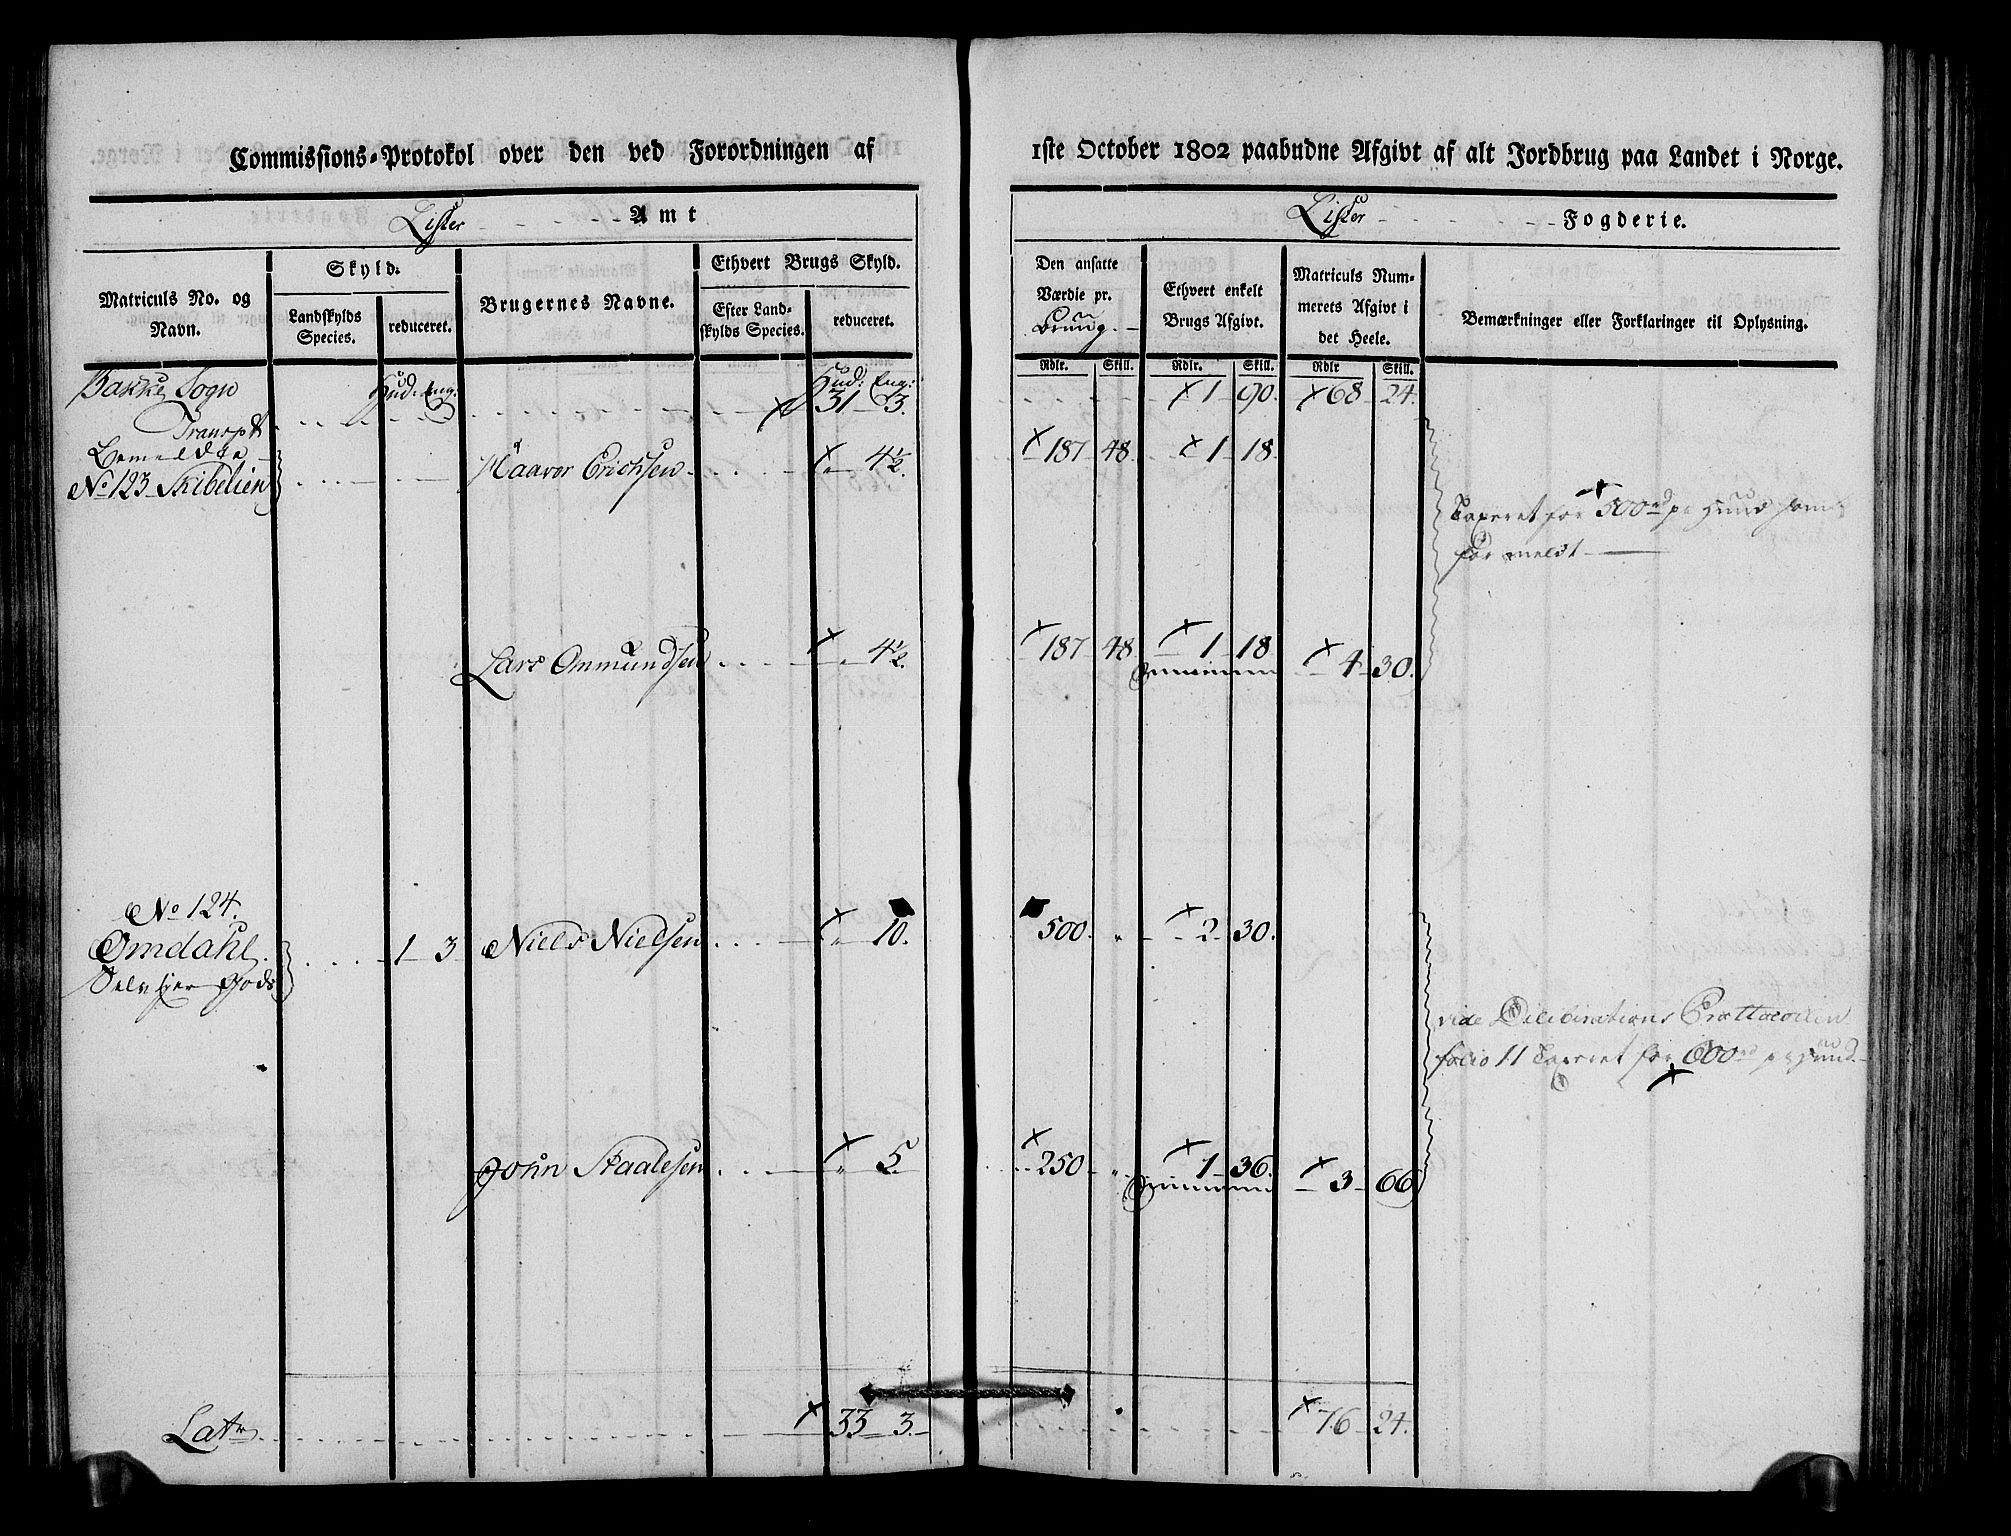 Commissions-Protokol over den ved Forordningen af
1ste October 1802 paabudne Afgivt af alt Jordbrug paa Landet i Norge.
Lister Amt
Lister Fogderie.
Matriculs No. og Navn.
Skyld.
Landskylds Species.
reduceret.
Brugernes Navne.
Ethvert Brugs Skyld.
Efter Landskylds Species.
reduceret.
Den ansatte Værdie pr. Bruug.
Ethvert enkelt Brugs Afgivt.
Matriculs Nummerets Afgivt i det Heele.
Bemærkninger eller Forklaringer til Oplysning.
Rdlr. Skill. Rdlr. Skill. Rdlr Skill.
Bakke Sogn Hud: Eng: Hud: Eng:
Transpt 31 3. 1 90. 68 24.
Bemeldte
No 123 Skibelien Haavor Erichsen 4½. 187 48. 1 18.
Taxeret for 500rd pr Huud som
for meldt
Lars Ommundsen 4½. 187 48 1 18 4 30.
No 124.
Omdahl 1 3 Niels Nielsen 10. 500. 2 30.
Selv Ejer Gods
vide Deliberations Prottocollen
folio 11 Taxeret for 600rd pr Huud.
John Staalesen 5 250 1 36. 3 66
Latr 33 3. 76 24.